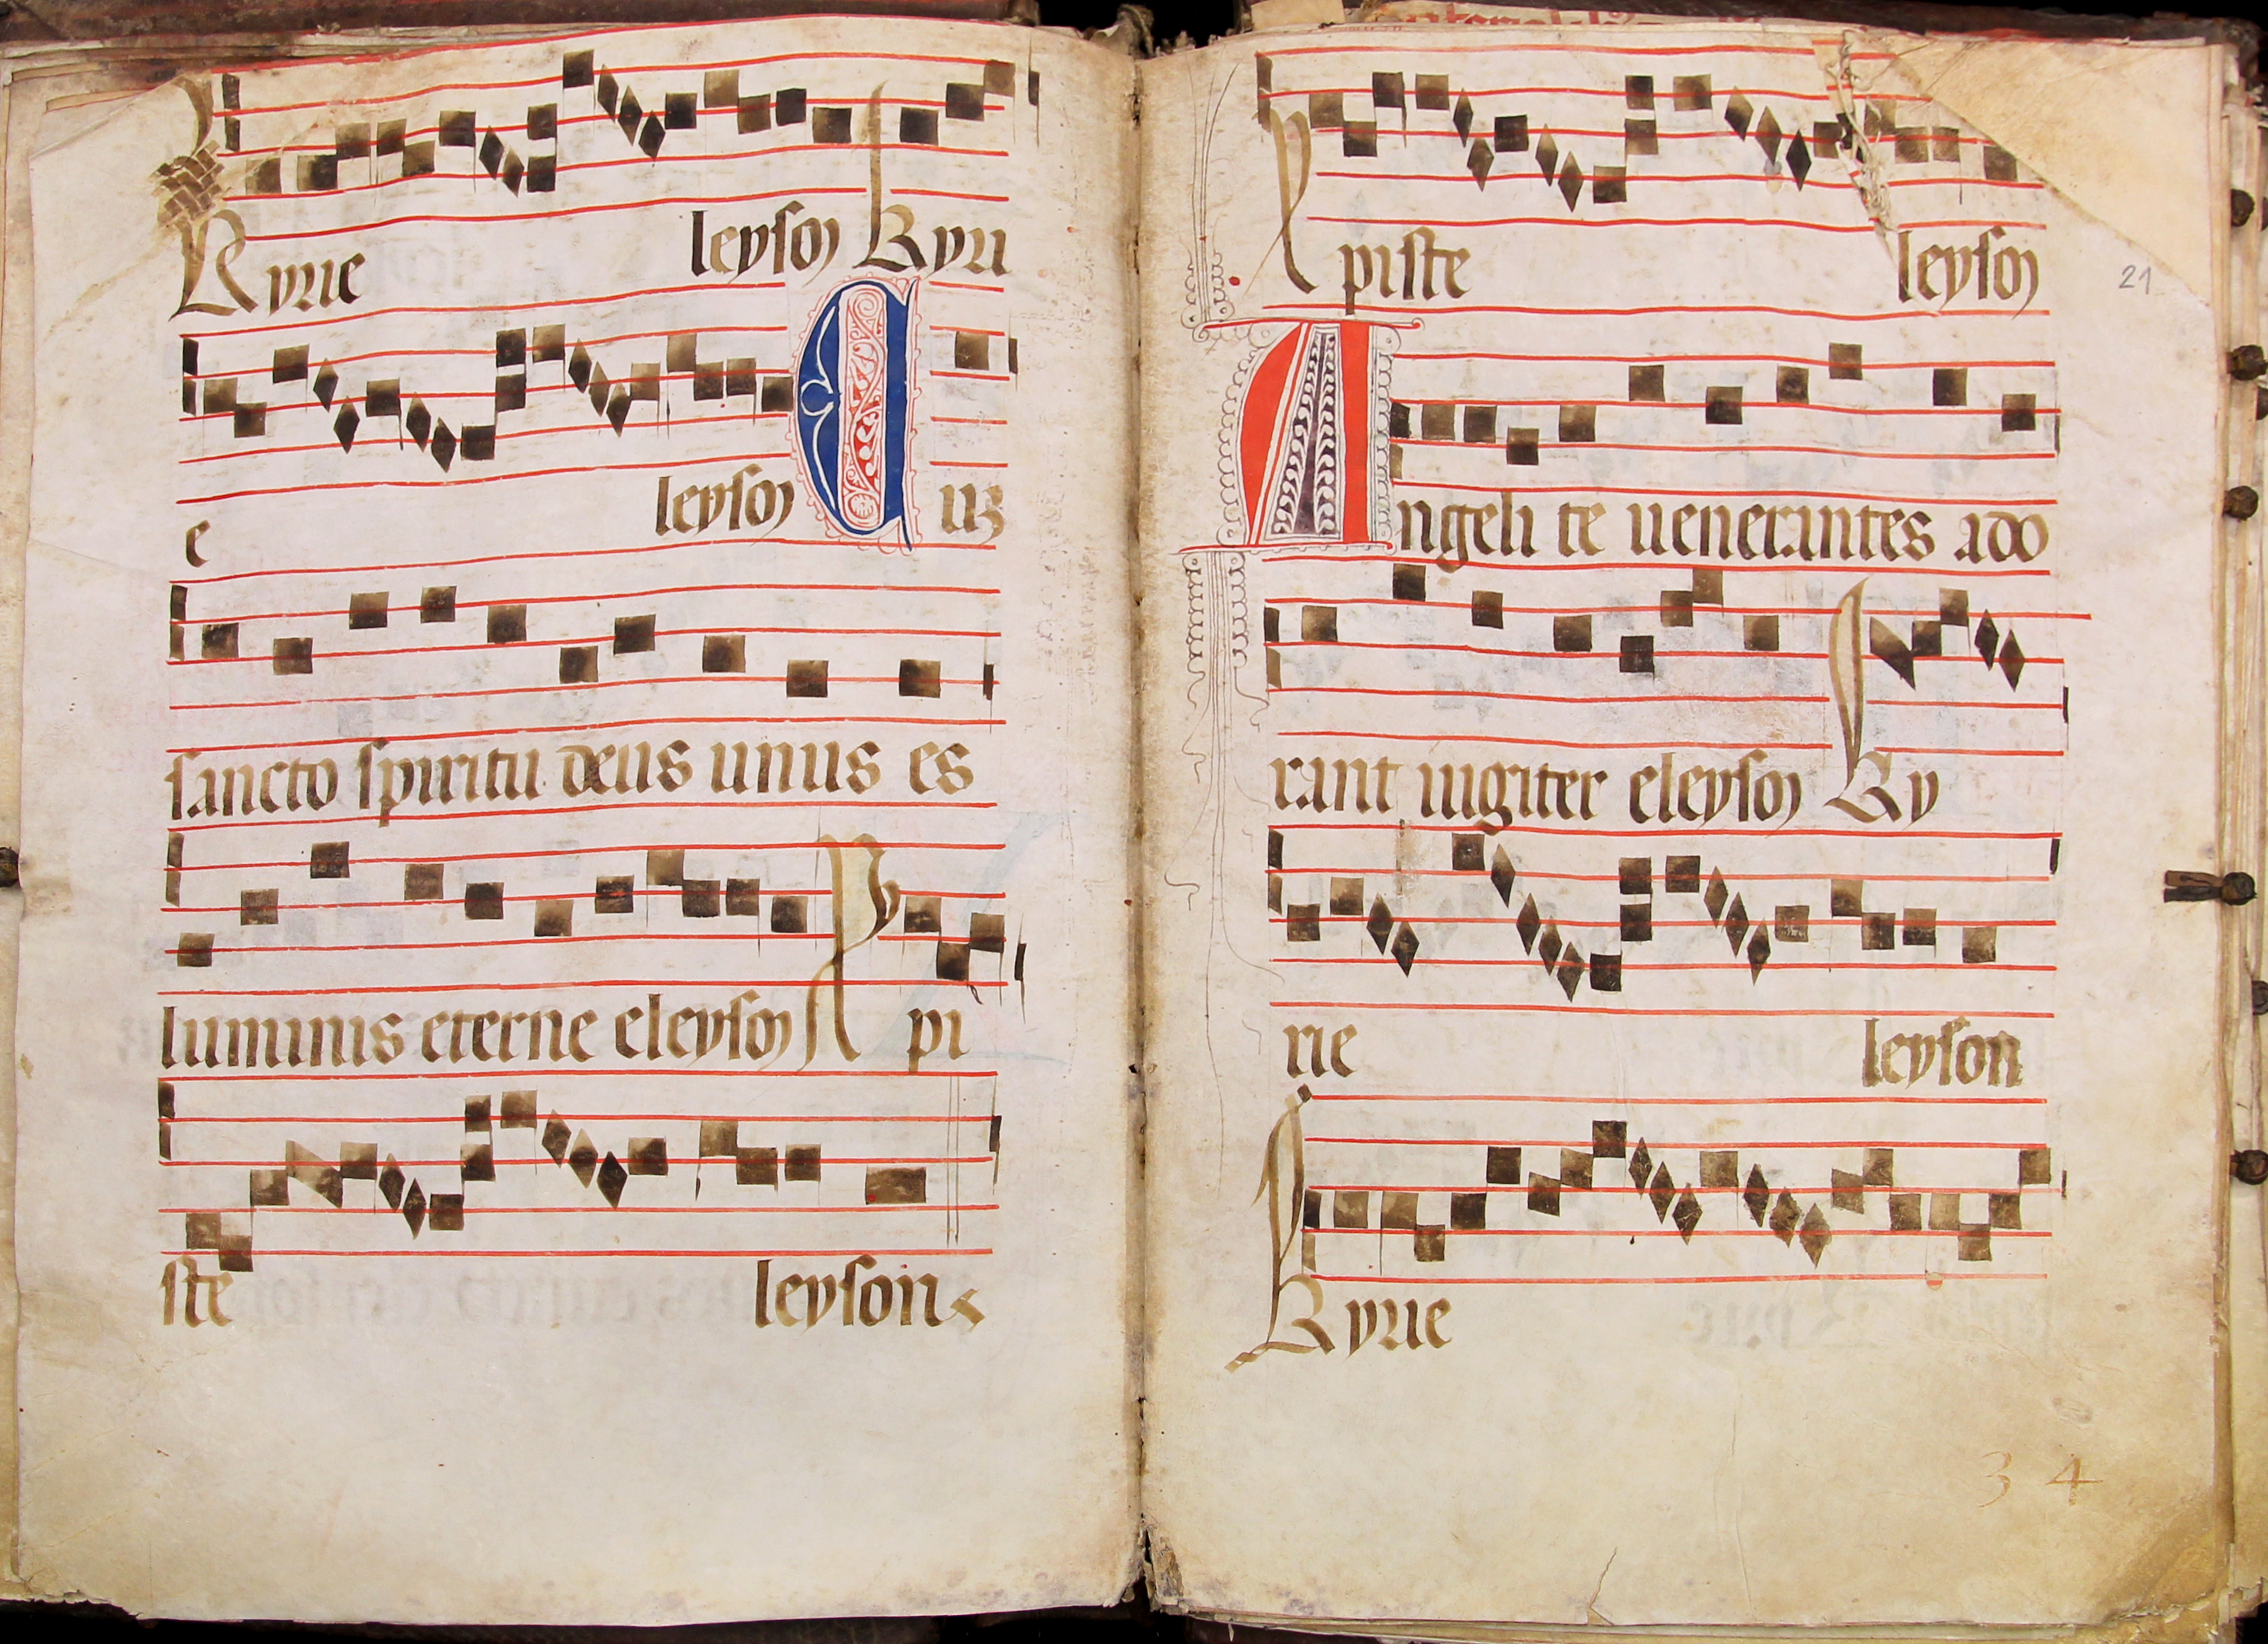 Kyrie leyson Kyri
e leyson Cuz
sancto spiritu deus unus es
luminis eterne eleyson Xpi
ste leyson
Xpiste leyson
21
Angeli te uenerantes ado
rant iugiter eleyson Ky
rie leyson
Kyrie
34